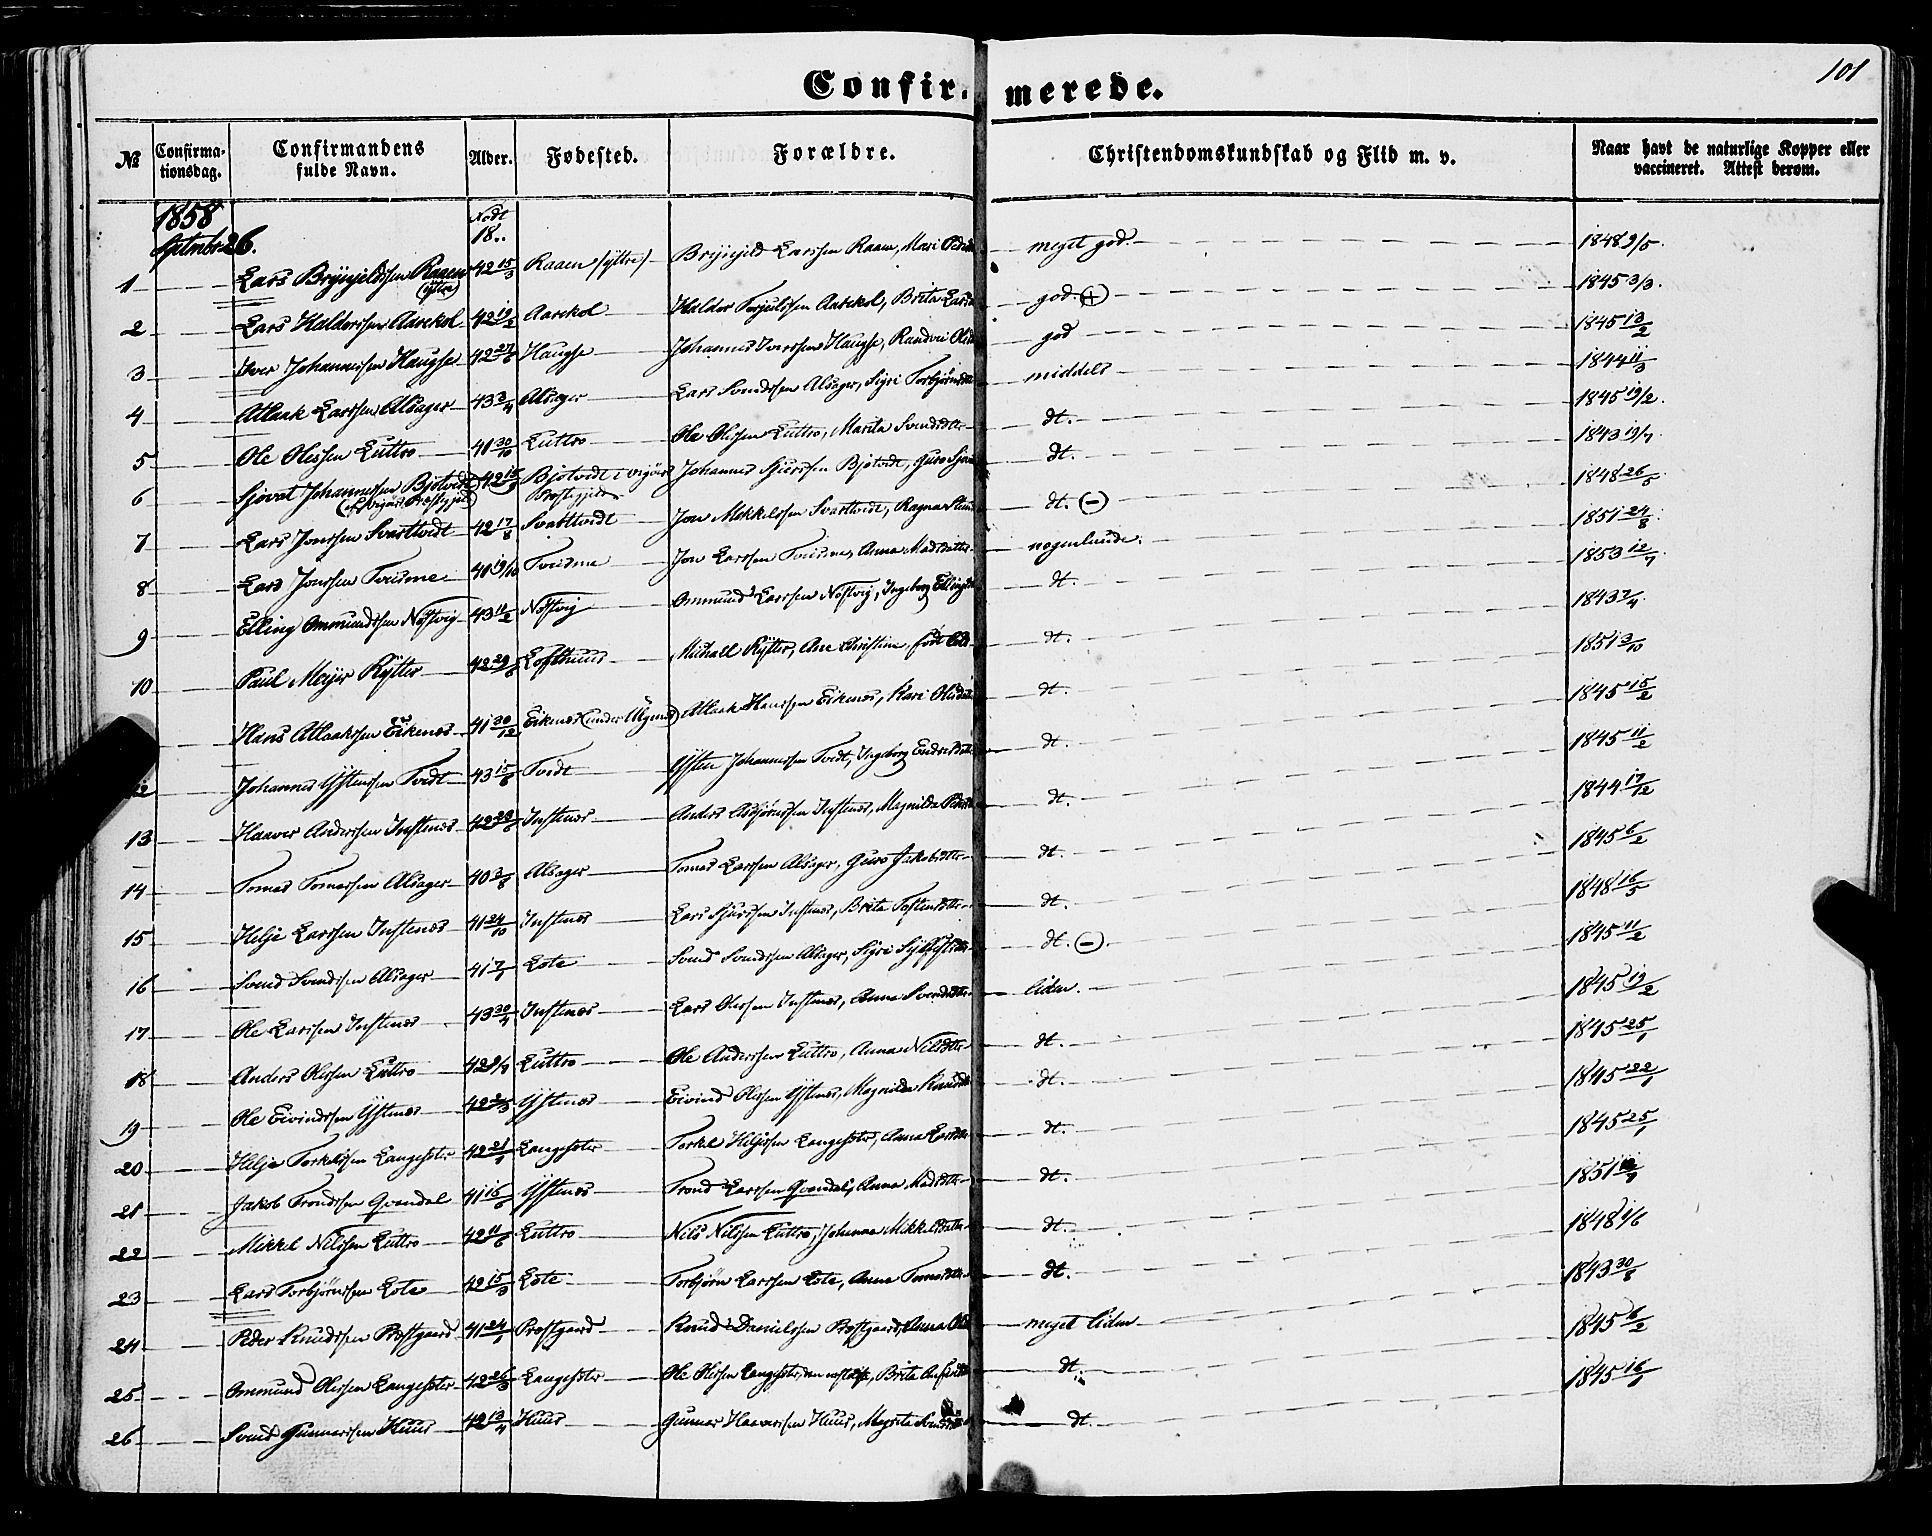 101
Confirmerede.
№ Confirmationsdag. Confirmandens fulde Navn. Alder. Fødested. Forældre. Christendomskundskab og Flid m. v. Naar havt de naturlige Kopper eller vaccineret. Attest derom.
1858 Septembr 26. Født 18..
1 Lars Brynjeldssen Raaen (yttre) 42 15/3 Raaen (yttre) Brynjeld Larssen Raaen, Mari meget god. 1848 9/5.
2 Lars Haldorssen Aarekol 42 19/2 Aarekol Haldor Torjeulssen Aarekol, Brita god. (+) 1845 3/3.
3 Iver Johannessen Haugse 42 27/6 Haugse Johannes Iverssen Haugse, Randvei god 1845 13/2
4 Atlaak Larssen Alsager 43 3/4 Alsager Lars Svendssen Alsager, Sigri Torbjørnsd middels 1844 11/3
5 Ole Olessen Luttro 41 30/10 Luttro Ole Olessen Luttro, Marita Svendsdtr dt. 1845 19/2.
6 Sjovat Johannessen Bjotvedt (af Vigørs Præstegjeld) 42 15/9 Bjotvedt i Vigørs Præstegjeld Johannes Sjurssen Bjotvedt, Guro dt. 1843 19/7
7 Lars Jonssen Svarttvedt 42 17/8 Svarttvedt Jon Mekkelssen Svarttvedt, Ragna dt. (-) 1848 26/5
8 Lars Jonssen Tveisme 41 19/10 Tveisme Jon Larssen Tveisme, Anna Madsdatter nogenlunde. 1851 24/8.
9 Elling Ommundssen Nøstvig 43 11/2 Nøstvig Ommund Larssen Nøstvig, Ingeborg Ellingsd dt. 1853 12/7.
10 Paul Meyer Rytter 42 29/6 Lofthuus Michall Rytter, Ane Christine, født dt. 1843 7/4.
Hans Atlaakssen Eikenes 41 30/12 Eikenes (under Algenes) Atlaak Hanssen Eikenes, Kari Olsd dt. 1851 3/10
12 Johannes Ystenssen Tvedt 43 15/6 Tvedt Ysten Johannessen Tvedt, Ingeborg Endresdatter dt. 1845 15/2
13 Haaver Anderssen Instenes 42 28/6 Instenes Anders Asbjørnssen Instenes, Magnilda dt. 1845 11/2
14 Tomas Tomassen Alsager 40 3/8 Alsager Tomas Larssen Alsager, Guro Jakobsdtr dt. 1844 17/12
15 Helje Larssen Instenes 41 24/10 Instenes Lars Sjurssen Instenes, Brita Tostensdtr dt. 1845 6/2
16 Svend Svendssen Alsager 41 7/1 Lote Svend Svendssen Alsager, Sigri dt. (-). 1848 16/5
17 Ole Larssen Instenes 43 30/4 Instenes Lars Olessen Instenes, Anna Svendsdtr liden. 1845 11/2
18 Anders Olessen Luttro 42 9/7 Luttro Ole Anderssen Luttro, Anna Nilsdtr dt. 1845 19/2
19 Ole Eivindssen Ystenes 42 2/3 Ystenes Eivind Olessen Ystenes, Magnilda dt. 1845 25/1
20 Helje Torkelssen Langesæter 42 21/1 Langesæter Torkel Heljessen Langesæter, Anna dt. 1845 22/1
21 Jakob Trondssen Qvendal 41 16/6 Ystenes Trond Larssen Qvendal, Anna Madsdtr dt. 1845 25/1
22 Mikkel Nilssen Luttro 42 11/6 Luttro Nils Nilssen Luttro, Johanna Mikkelsdatter dt. 1851
23 Lars Torbjørnssen Lote 42 15/3 Lote Torbjørn Larssen Lote, Anna Tomasdtr dt. 1848 1/6
24 Peder Knudssen Præstgaard 41 24/1 Præstgaard Knud Danielssen Præstgaard, Anna meget liden 1843 30/8
25 Ommund Olessen Langesæter 42 26/3 Langesæter Ole Olessen Langesæter, Brita dt. 1845 6/2
26 Svend Gunnarssen Huus 42 13/4 Huus Gunnar Haaverssen Huus, Magrita dt. 1845 16/1